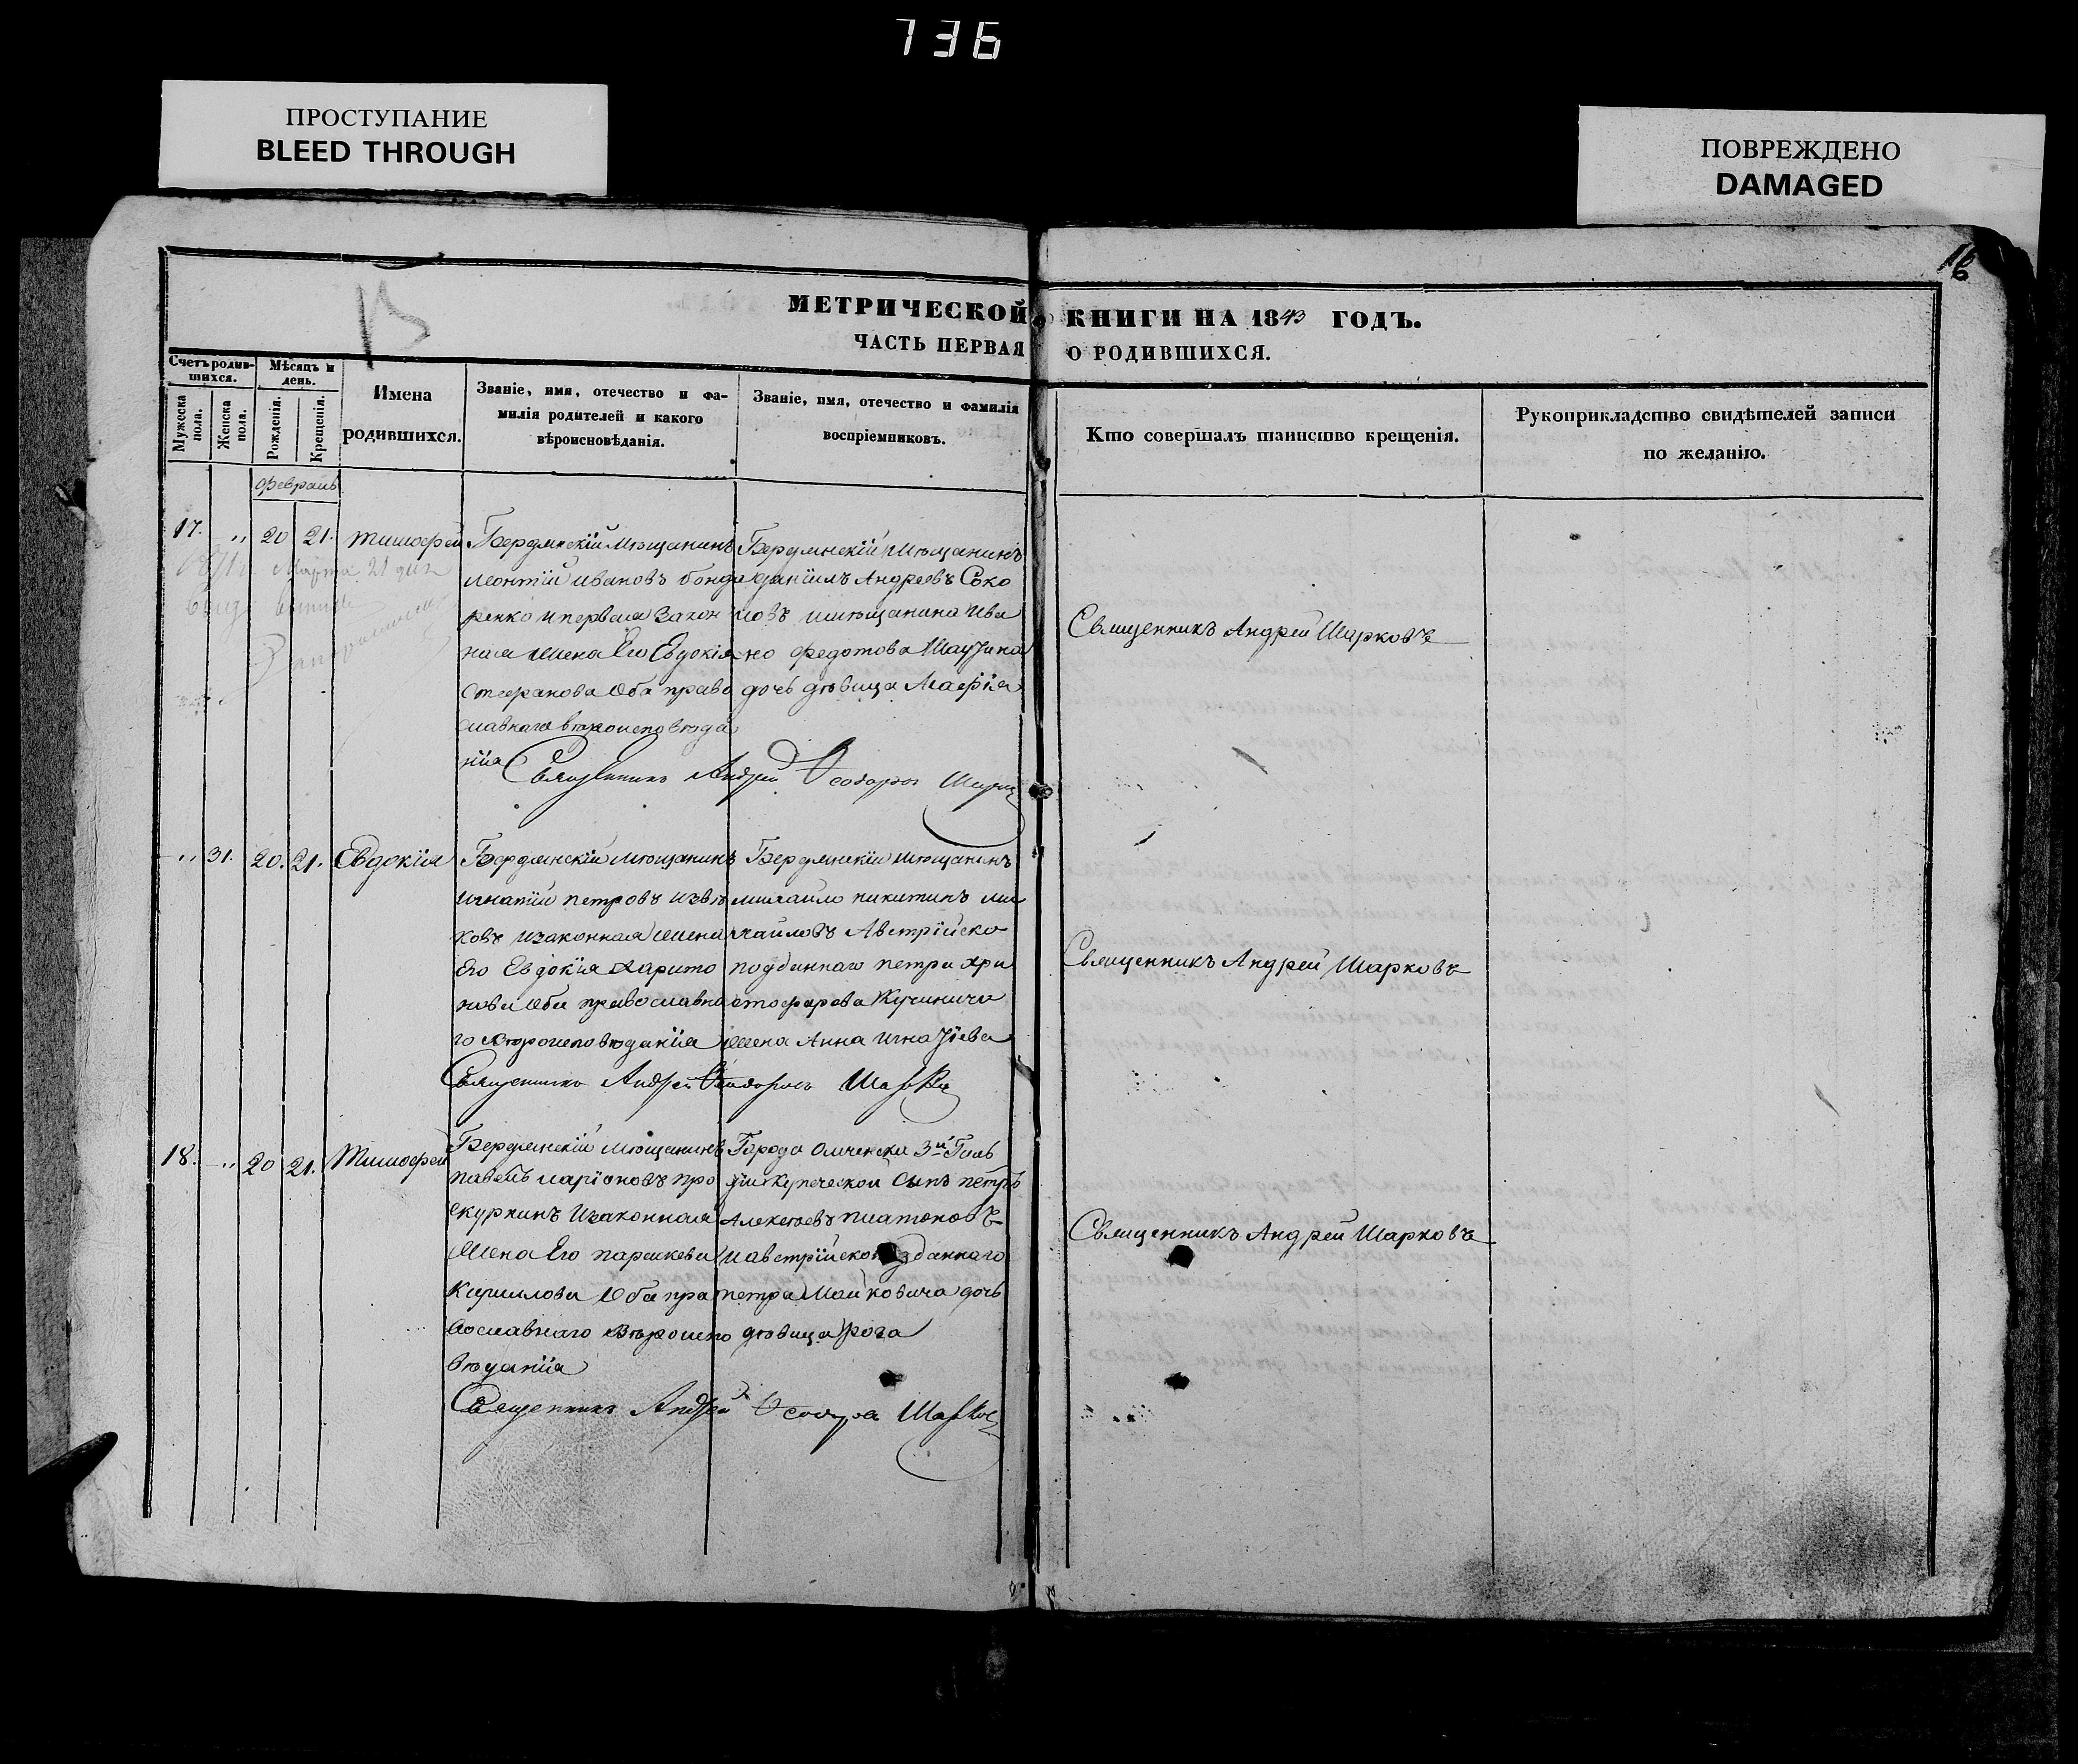 736
ПРОСТУПАНИЕ
BLEED THROUGH
ПОВРЕЖДЕНО
DAMAGED
16
МЕТРИЧЕСКОЙ КНИГИ НА 1843 ГОДЪ.
ЧАСТЬ ПЕРВАЯ О РОДИВШИХСЯ.
Счетъ родившихся.
Мужеска пола.
Женска пола.
Мѣсяцъ и день.
Рожденія.
Крещенія.
Имена
родившихся.
Званіе, имя, отечество и фа-
милія родителей и какого
вѣроисновѣданія.
Званіе, имя, отечество и фамилія
воспріемниковъ.
Кто совершалъ таинство крещенія.
Рукоприкладство свидѣтелей записи
по желанію.
Февраль
17. „ 20 21. Тимофей
Марта 21 дня
Бердянскій Мѣщанинъ
Леонтій Ивановъ Бонда
ренко и первая закон
ная жена Его Евдокія
Стефанова Оба право
славнаго вѣроисповѣда
нія
Бердянскій Мѣщанинъ
Даніилъ Андреевъ Соко
ловъ и мѣщанина Ива
но Федотова
дочь дѣвица Марія
Священникъ Андрей Ѳеодоров
Священникъ Андрей Шарковъ
„ 31. 20. 21. Евдокія
Бердянскій Мѣщанинъ
Игнатій Петровъ Извѣ
ковъ и законная жена
Его Евдокія Харито
нова Оба православна
го вѣроисповѣданія
Бердянскій мѣщанинъ
Михайло Никитинъ Ми
хайловъ Австрійско
подданнаго Петра Хри
стофорова Кучинича
жена Анна Игнатіева
Священникъ Андрей Ѳеодоровъ
Священникъ Андрей Шарковъ
18. „ 20 21. Тимофей
Бердянскій мѣщанинъ
Павелъ Ларіоновъ Про
скурнинъ и законная
Жена Его Параскева
Кириллова Оба пра
вославнаго Вѣроиспо
вѣданія
Города 3й Гиль
діи Купеческой Сынъ Петръ
Алексѣевъ Платоновъ
и австрійско подданнаго
Петра Майковича дочь
дѣвица
Священникъ Андрей Ѳеодоров
Священникъ Андрей Шарковъ